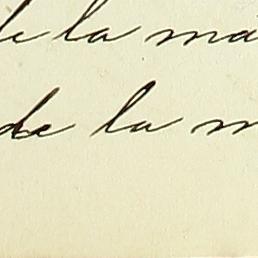 de la ma
de la m